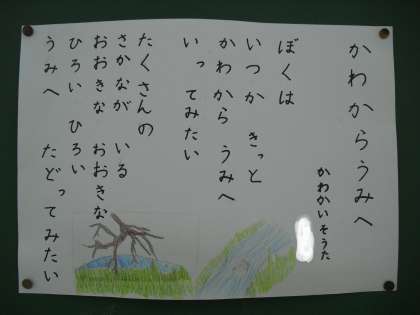 かわからうみへ
かわかいそうた
ぼくは
いつか きっと
かわから うみへ
いって みたい
たくさんの
さかなが いる
おおきな おおきな
ひろい ひろい
うみへ たどって みたい